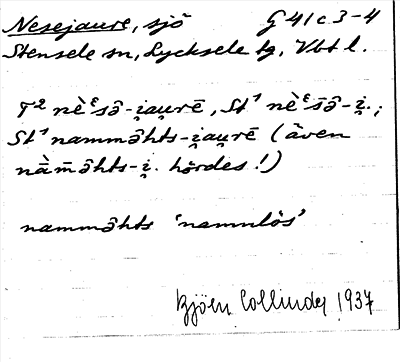 Nesejaure, sjö G 41 c 3-4
Stensele sn, Lycksele tg, Vbt l.
T² nèᵋsā̂-i̯au̯rē, St¹ nèᵋs̄ā̂-i̯.;
St¹ nammā̂hts-i̯au̯rē (även
nā̀m̄ā̂hts-i̯. hördes!)
nammā̂hts 'namnlös'
Björn Collinder 1937